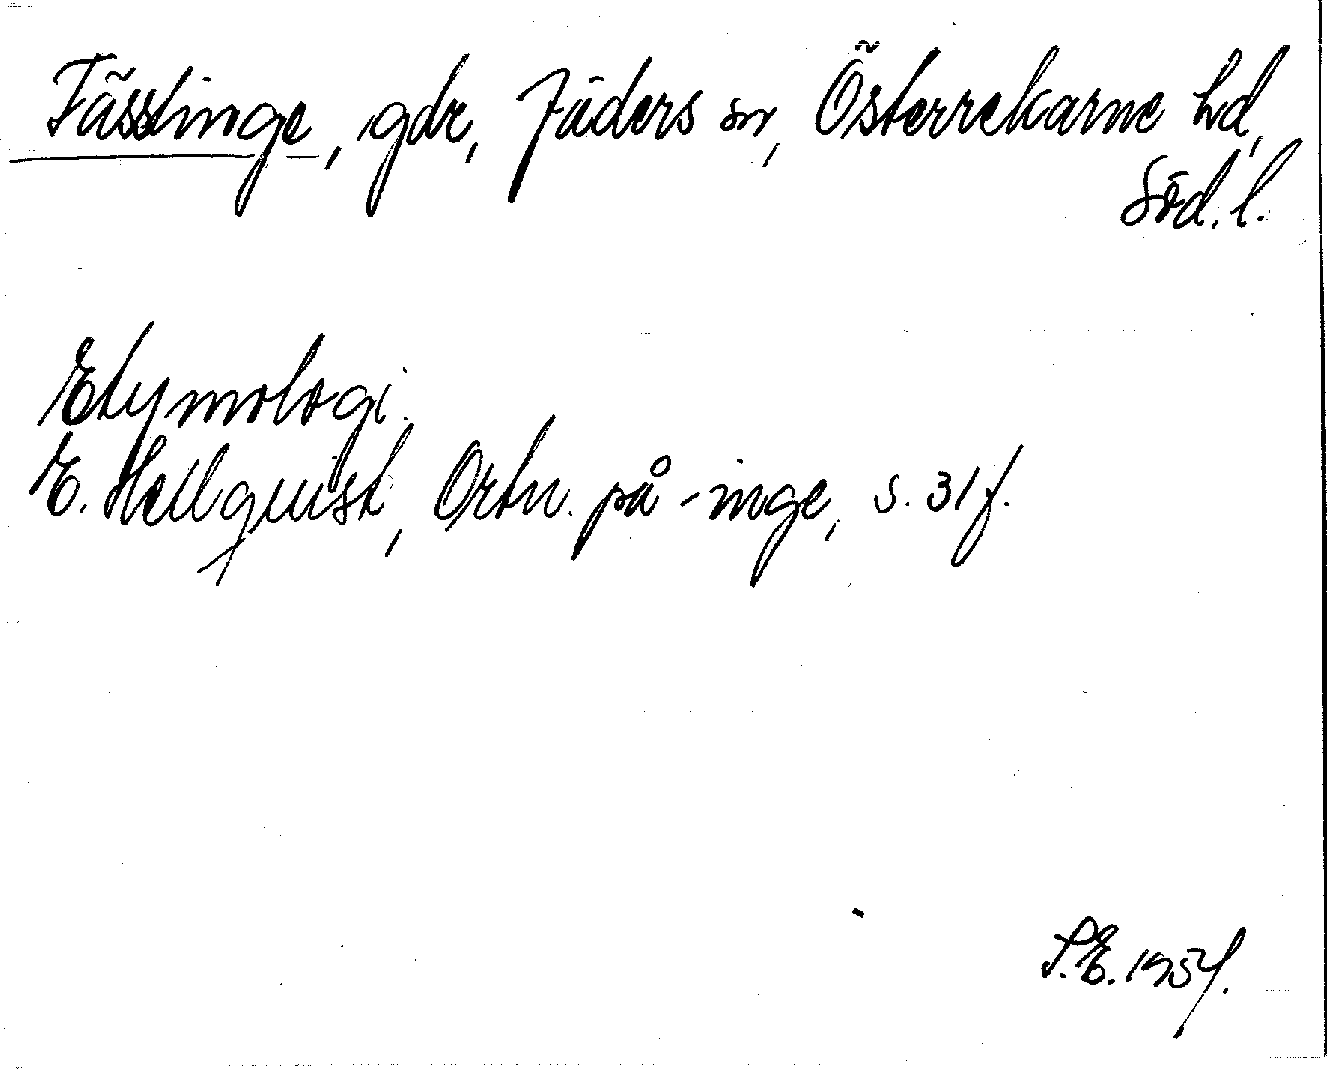 Fässtinge, gdr, Jäders sn, Österrekarne hd,
Söd. l.
Etymologi.
E. Hellquist, Ortn. på -inge, s. 31 f.
S.E. 1954.